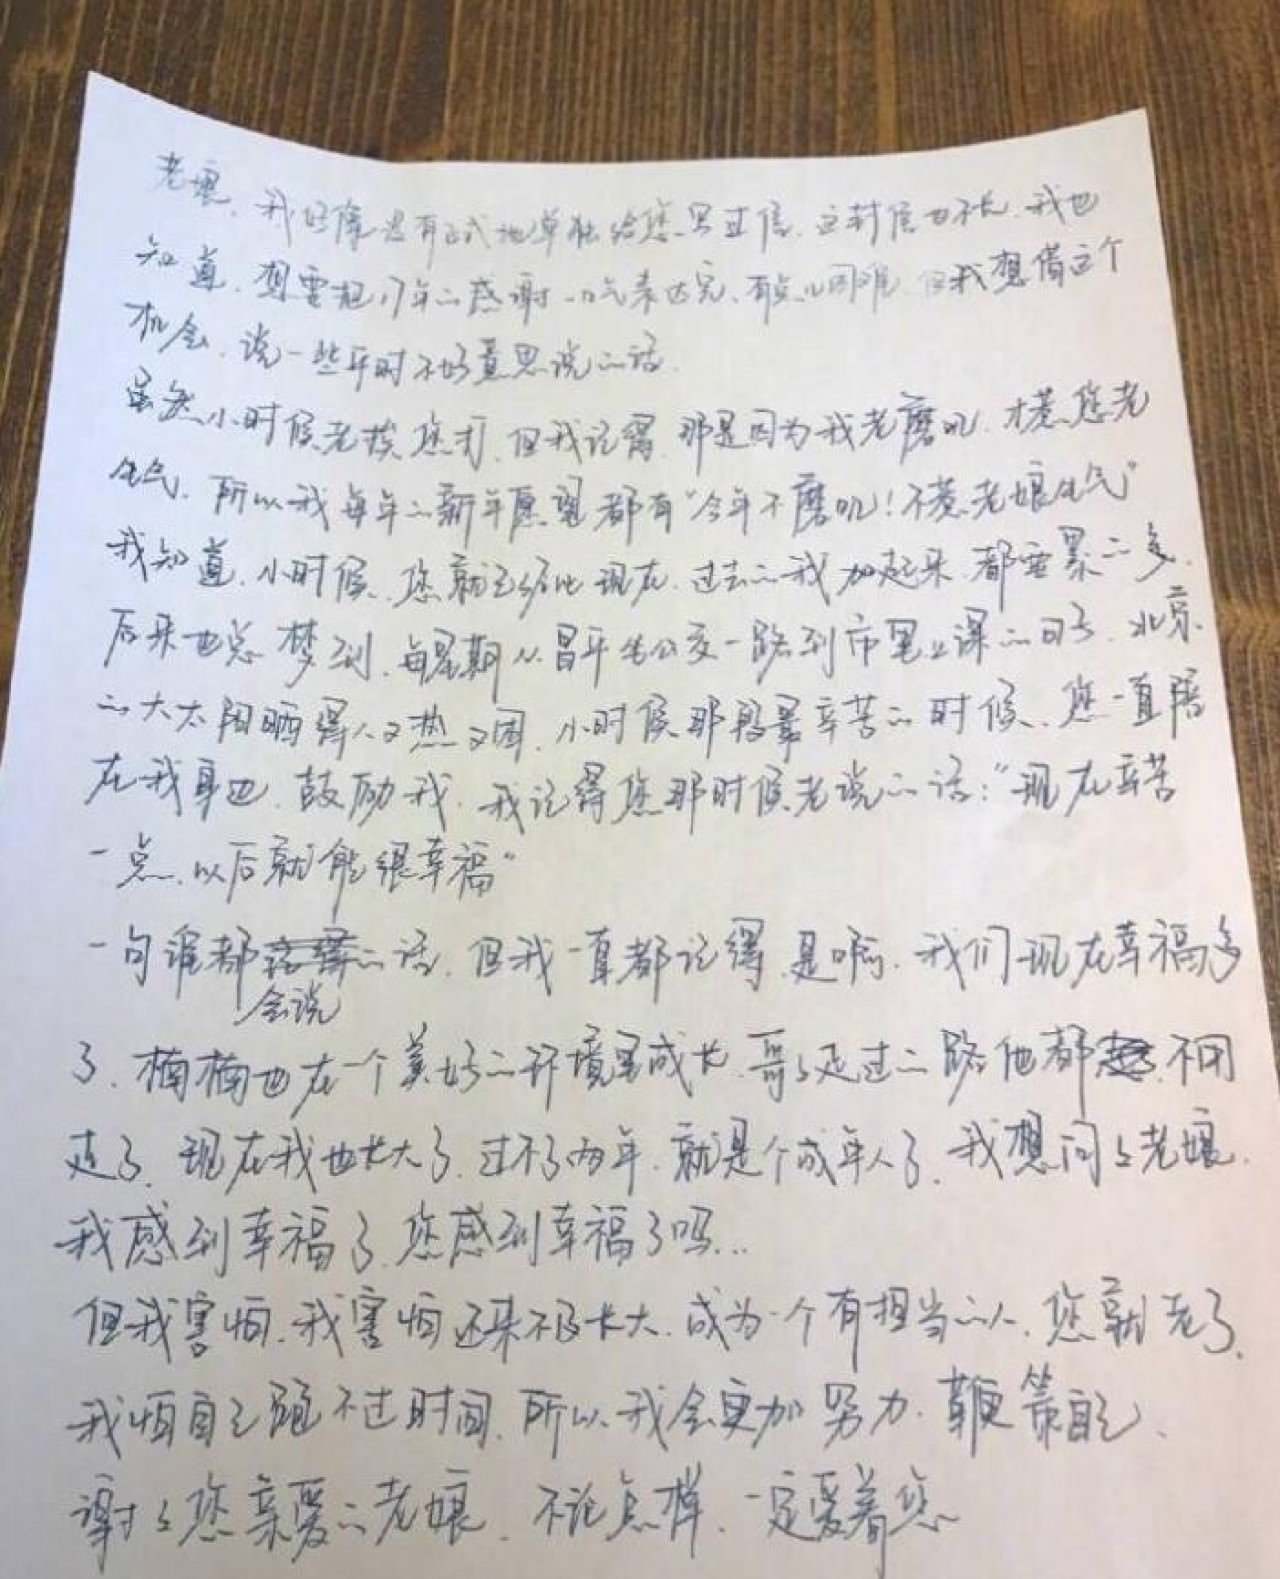 老娘、我好像没有正式地单独给您写过信、这封信也不长、我也
知道、想要把17年的感谢一口气表达完、有点儿困难、但我想借这个
机会、说一些平时不好意思说的话.
虽然小时候老挨您打、但我记得、那是因为我老磨叽、才惹您老
生气、所以我每年的新年愿望都有“今年不磨叽！不惹老娘生气”
我知道、小时候、您就已经比现在、过去的我加起来、都要累的多、
后来也总梦到、每星期从昌平坐公交一路到市里上课的日子、北京
的大太阳晒得人又热又困、小时候那段最辛苦的时候、您一直陪
在我身边、鼓励我、我记得您那时候老说的话：“现在辛苦
一点、以后就能很幸福”
一句谁都会说的话、但我一直都记得、是啊、我们现在幸福多
了、楠楠也在一个美好的环境里成长、哥哥走过的路他都不用
走了、现在我也长大了、过不了两年、就是个成年人了、我想问问老娘、
我感到幸福了、您感到幸福了吗...
但我害怕、我害怕还来不及长大、成为一个有担当的人、您就老了、
我怕自己跑不过时间、所以我会更加努力、鞭策自己、
谢谢您亲爱的老娘、不论怎样、一定爱着您